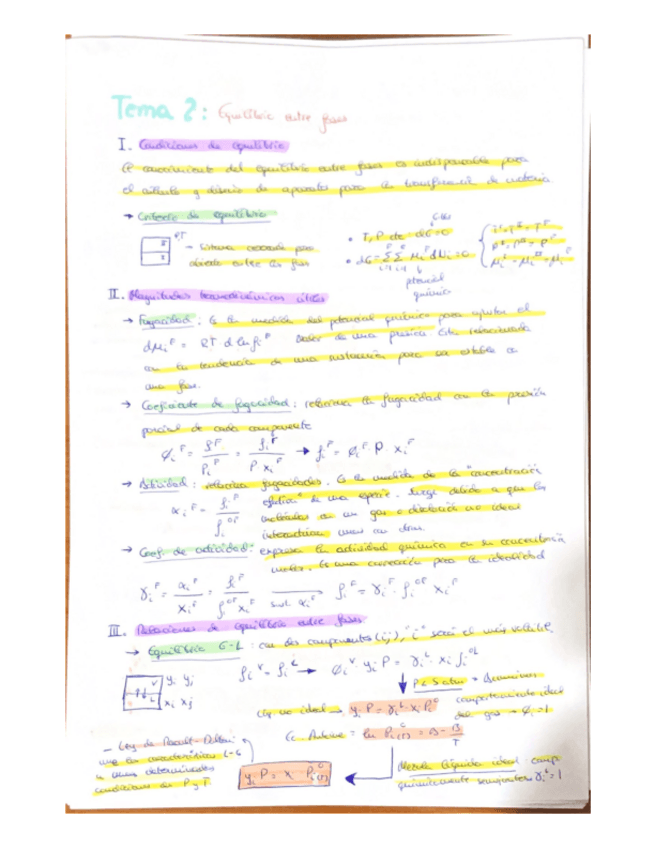 Tema 2: Equilibrio entre fases
I. Condiciones de equilibrio
El conocimiento del equilibrio entre fases es indispensable para
el cálculo y diseño de aparatos para la transferencia de materia.
→ Criterio de equilibrio
P,T
- Sistema cerrado pero
abierto entre las fases
• T, P cte: dG=0
• dG = ΣΣ μi^F dNi = 0
potencial
químico
II. Magnitudes termodinámicas útiles
→ Fugacidad: Es la medida del potencial químico para ajustar el
dμi^F = RT d ln fi^F
valor de una presión. Está relacionada
con la tendencia de una sustancia para ser estable a
una fase.
→ Coeficiente de fugacidad: relaciona la fugacidad con la presión
parcial de cada componente
Øi^F = fi^F / Pi^F = fi^F / P xi^F → fi^F = Øi^F · P · xi^F
→ Actividad: relaciona fugacidades. Es la medida de la "concentración
αi^F = fi^F / fi^oF
efectiva" de una especie. Surge debido a que las
moléculas en un gas o disolución no ideal
interactúan unas con otras.
→ Coef. de actividad: expresa la actividad química en su concentración
molar. Es una corrección para la idealidad
γi^F = αi^F / xi^F = fi^F / fi^oF xi^F sust. αi^F fi^F = γi^F · fi^oF xi^F
III. Relaciones de equilibrio entre fases
→ Equilibrio G-L: con dos componentes (i,j), "i" será el más volátil.
V yi yj
L xi xj
fi^V = fi^L → Øi^V yi P = γi^L · xi fi^oL
P < 5 atm →
comportamiento ideal
del gas → Øi = 1
liq no ideal → yi P = γi^L · xi Pi^o
Ec. Antoine = ln Pi^o(T) = A - B/T
- Ley de Raoult-Dalton:
une las características L-G
a unas determinadas
condiciones de P y T.
yi P = xi · Pi^o(T)
Mezcla líquida ideal: comp.
químicamente semejantes γi^L = 1